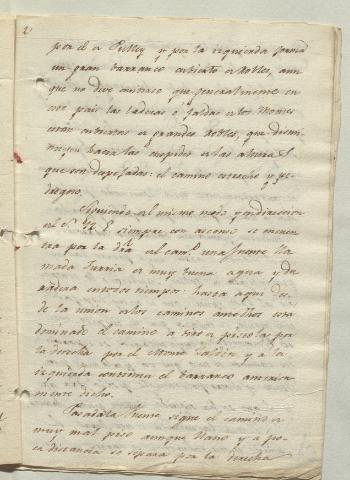 2
por el a y por la izquierda forma
un gran barranco cubierto de Robles, aun
que no deve omitirse que generalmente en
este pais las laderas o faldas de los Montes
estan cubiertas de grandes Robles, que desmi
nuyen hacia las cuspides de las alturas
que son despejadas: el camino estrecho y pe
dregoso.
Siguiendo del mismo modo y en direccion
al S. E. siempre con ascenso se encuen
tra por la dra. del cam.o una fuente lla
mada de muy buena agua y du
radera en todos tiempos: hasta aqui des
de la union de los caminos antedhos. esta
dominado el camino a tiro de pistola por
la derecha por el Monte y a la
izquierda continua el barranco anterior
mente dicho.
Pasada la fuente sigue el camino de
muy mal piso aunque llano y a po
ca distancia se separa por la derecha